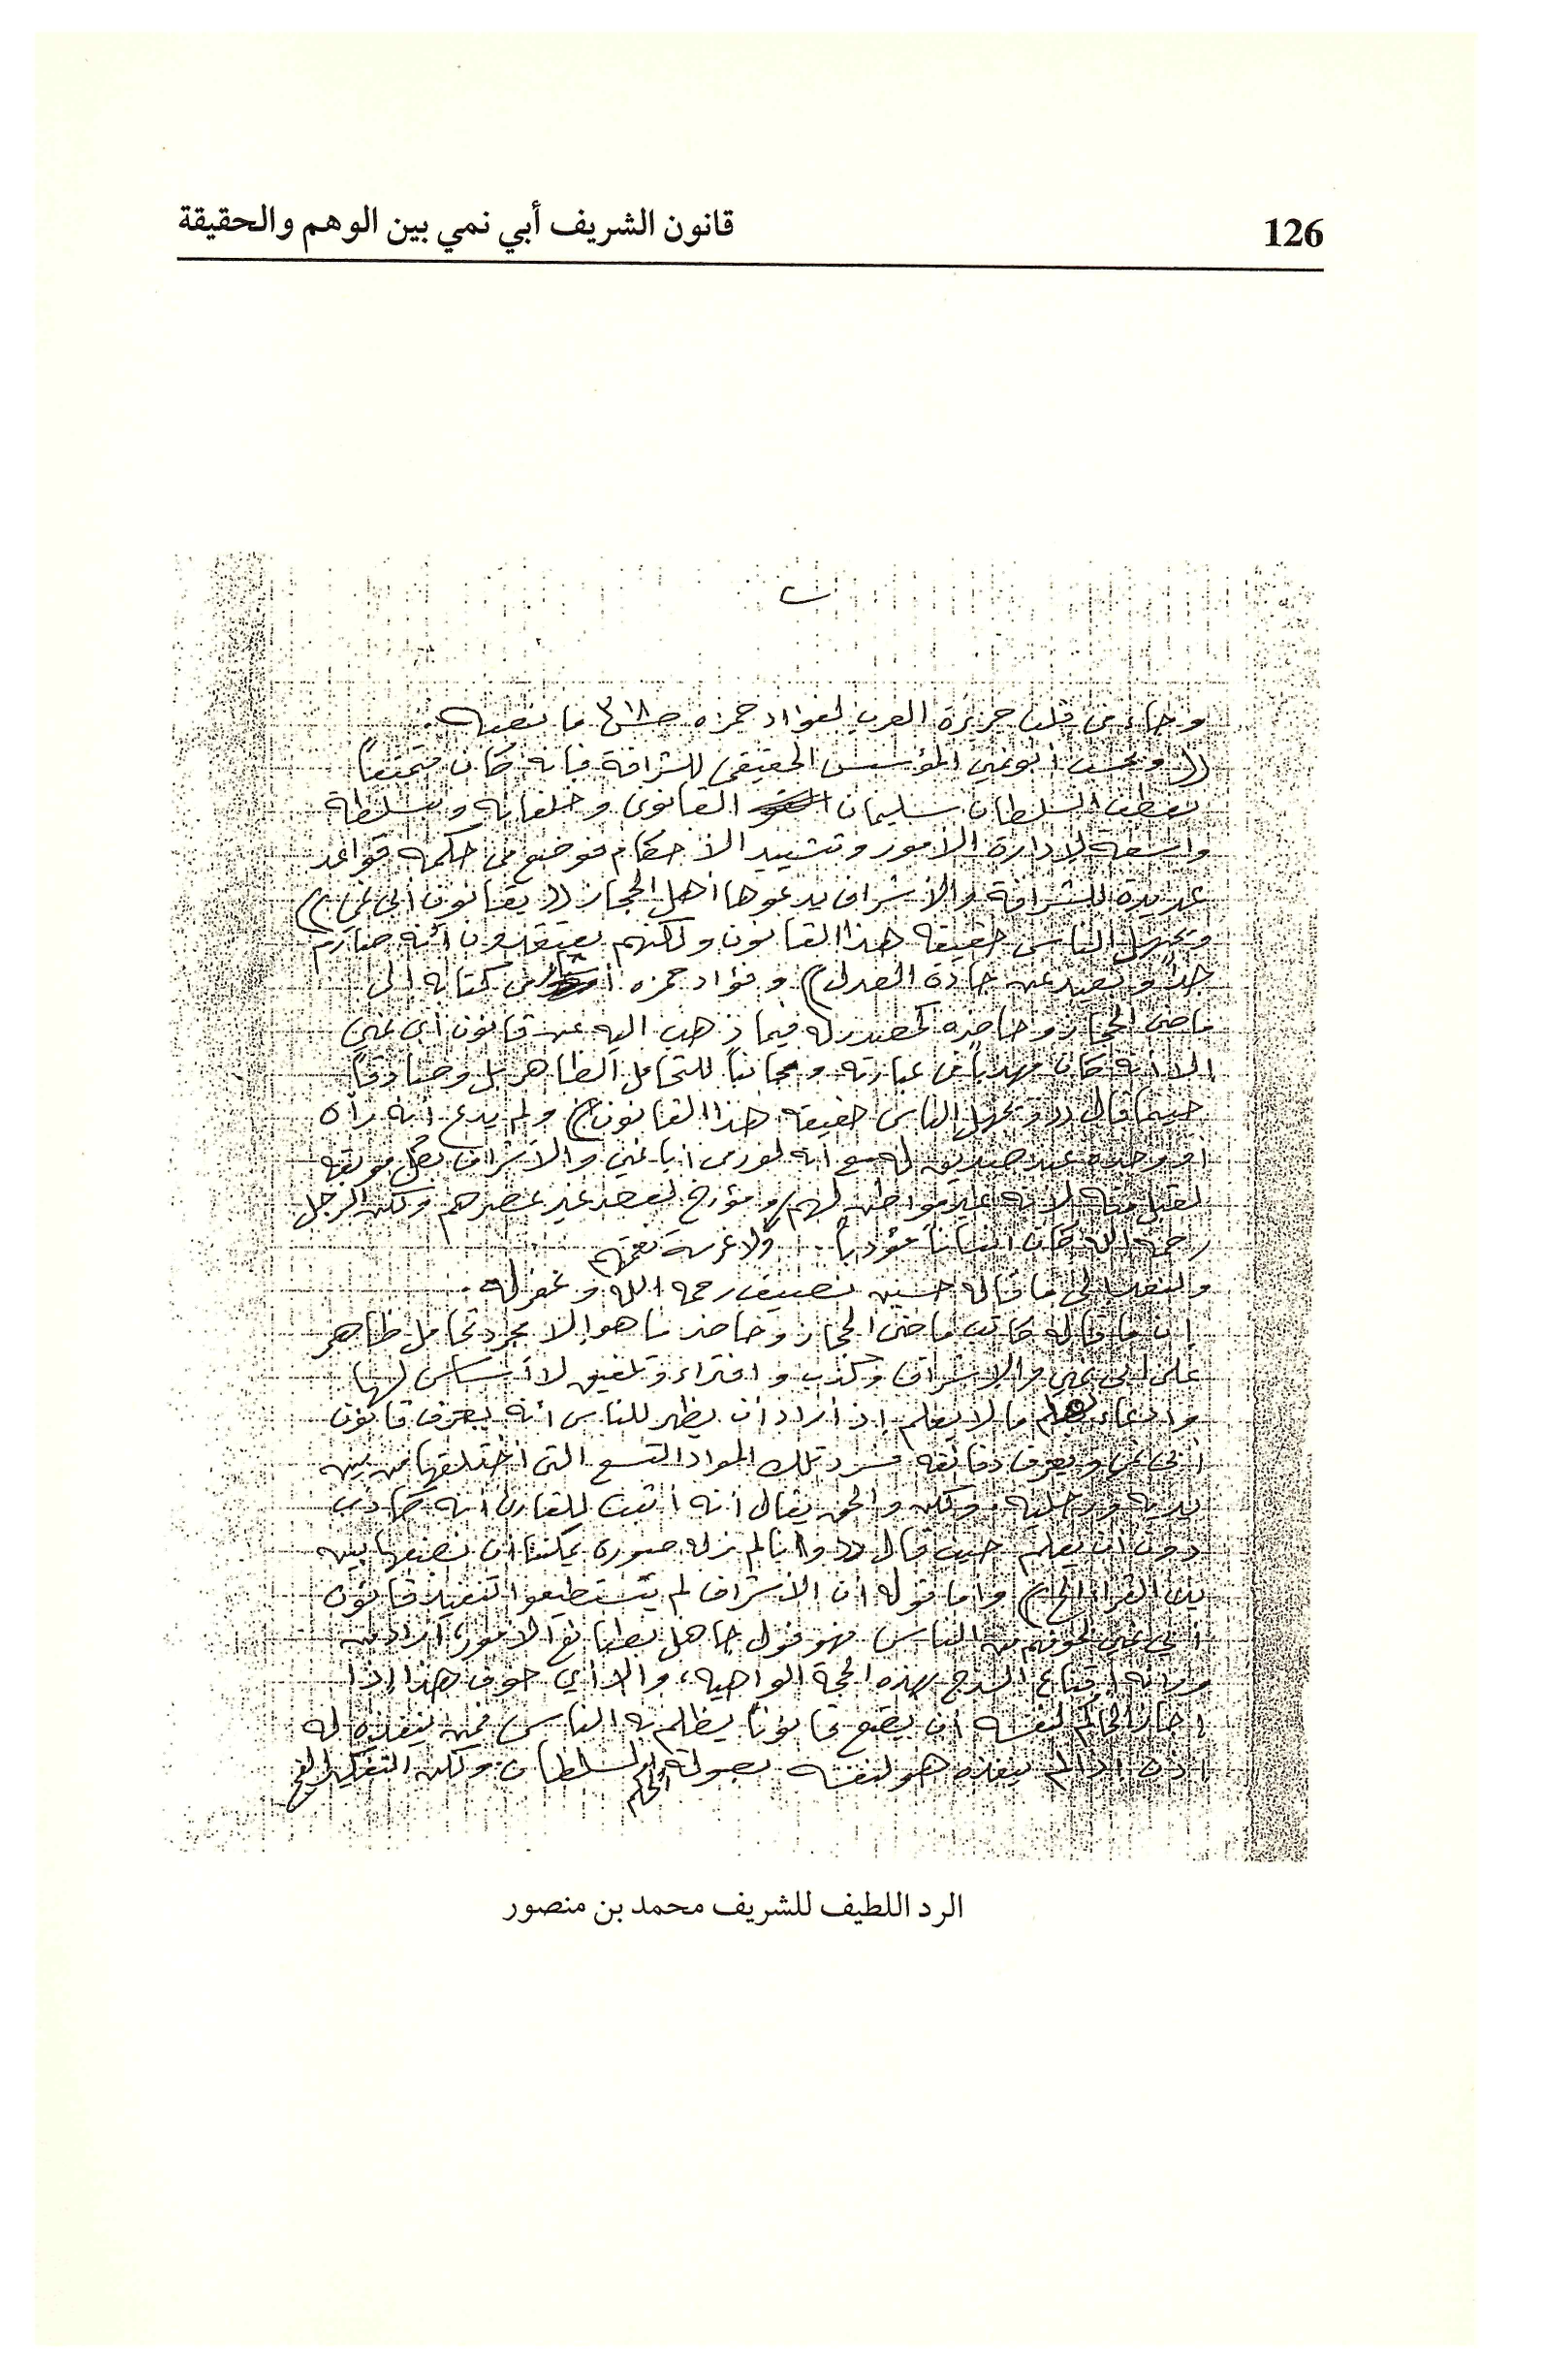 126
قانون الشريف أبي نمي بين الوهم والحقيقة
ب
وجاء في قلب جزيرة العرب لفؤاد حمزه ص ٣١٨ ما نصه.
((ويحسب أبو نمي المؤسس الحقيقي للشرافة فإنه كان متمتعاً
بعطف السلطان سليمان القانوني وخلفائه وبسلطة
واسعة لإدارة الأمور وتشييد الأحكام فوضع في حكمه قواعد
عديدة للشرافة والأشراف يدعوها أهل الحجاز ((بقانون أبي نمي))
ويجهل الناس حقيقة هذا القانون ولكنهم يعتقدون أنه صارم
جداً وبعيد عن جادة العدل)) وفؤاد حمزه في كتابه الى
ماضي الحجاز وحاضره كمصدر له فيما ذهب اليه عن قانون أبي نمي
إلا أنه كان مهذباً في عبارته ومجانباً للتحامل الظاهر بل وصادقاً
حينما قال ((ويجهل الناس حقيقة هذا القانون)) ولم يدع أنه رآه
أو وجده عند صديق له مع أنه لو رمى أبا نمي والأشراف بكل موبقه
لقبل منه لأنه غير مواطن لهم ومؤرخ لعصر غير عصرهم ولكن الرجل
رحمه الله كان انساناً مؤدباً. ولا غرسة نعمتهم
ولنعد إلى ما قاله حسين نصيف رحمه الله وغفر له.
إن ما قاله كاتب ماضي الحجاز وحاضره ما هو إلا مجرد تحامل ظاهر
على أبي نمي والأشراف وكذب وافتراء وتلفيق لا أساس لها
وادعاء لعلم ما لا يعلم إذ أراد أن يظهر للناس أنه يعرف قانون
أبي نمي ويعرف دقائقه فسرد تلك المواد التسع التي اختلقها من بين
يديه ورجليه. ولكن والحق يقال أنه أثبت للقارئ أنه كاذب
دون أن يعلم حيث قال ((وإنا لم نر له صورة يمكننا أن نضعها بين
يدي القراء الخ)) واما قوله ان الأشراف لم يستطيعوا تنفيذ قانون
أبي نمي لخوفهم من الناس فهو قول جاهل بطبائع الأمور، أراد من
ورائه إقناع السذج بهذه الحجة الواهيه، والا أي خوف هذا إذا
أجاز الحاكم لنفسه أن يضع قانوناً يظلم به الناس فمن ينفذه له
إذن إذا لم ينفذه هو لنفسه بصولة الحكم والسلطان ولكن التفكير
الرد اللطيف للشريف محمد بن منصور